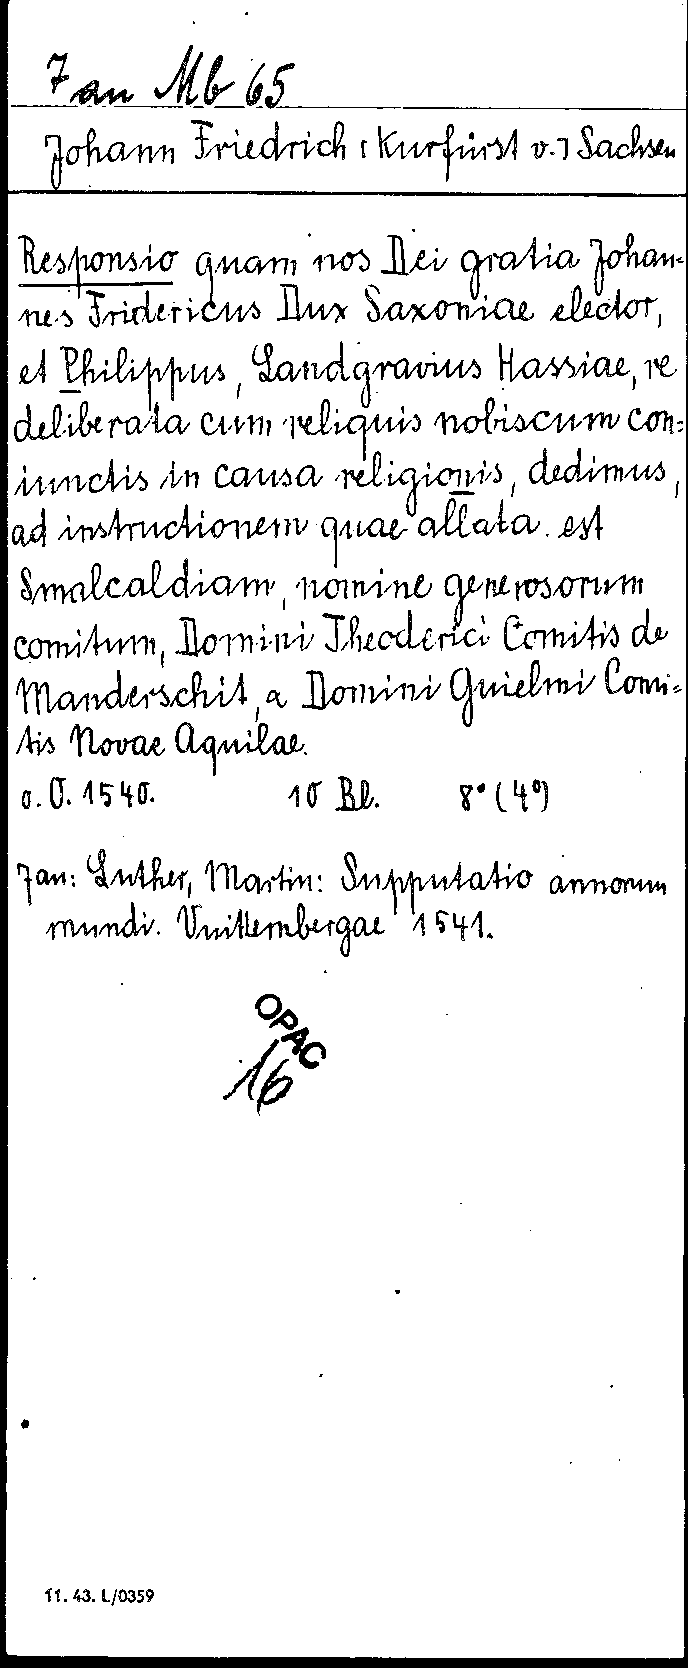 7 an Mb 65
Johann Friedrich [Kurfürst v.] Sachsen
Responsio quam nos Dei gratia Johan=
nes Fridericus Dux Saxoniae elector,
et Philippus, Landgravius Hassiae, re
deliberata cum reliquis nobiscum con=
iunctis in causa religionis, dedimus,
ad instructionem quae allata est
Smalcaldiam, nomine generosorum
comitum, Domini Theoderici Comitis de
Manderschit, a Domini Guielmi Comi=
tis Novae Aquilae.
o. O. 1540. 10 Bl. 8° (4°)
7an: Luther, Martin: Supputatio annorum
mundi. Vuittembergae 1541.
OPAC
16
11. 43. L/0359